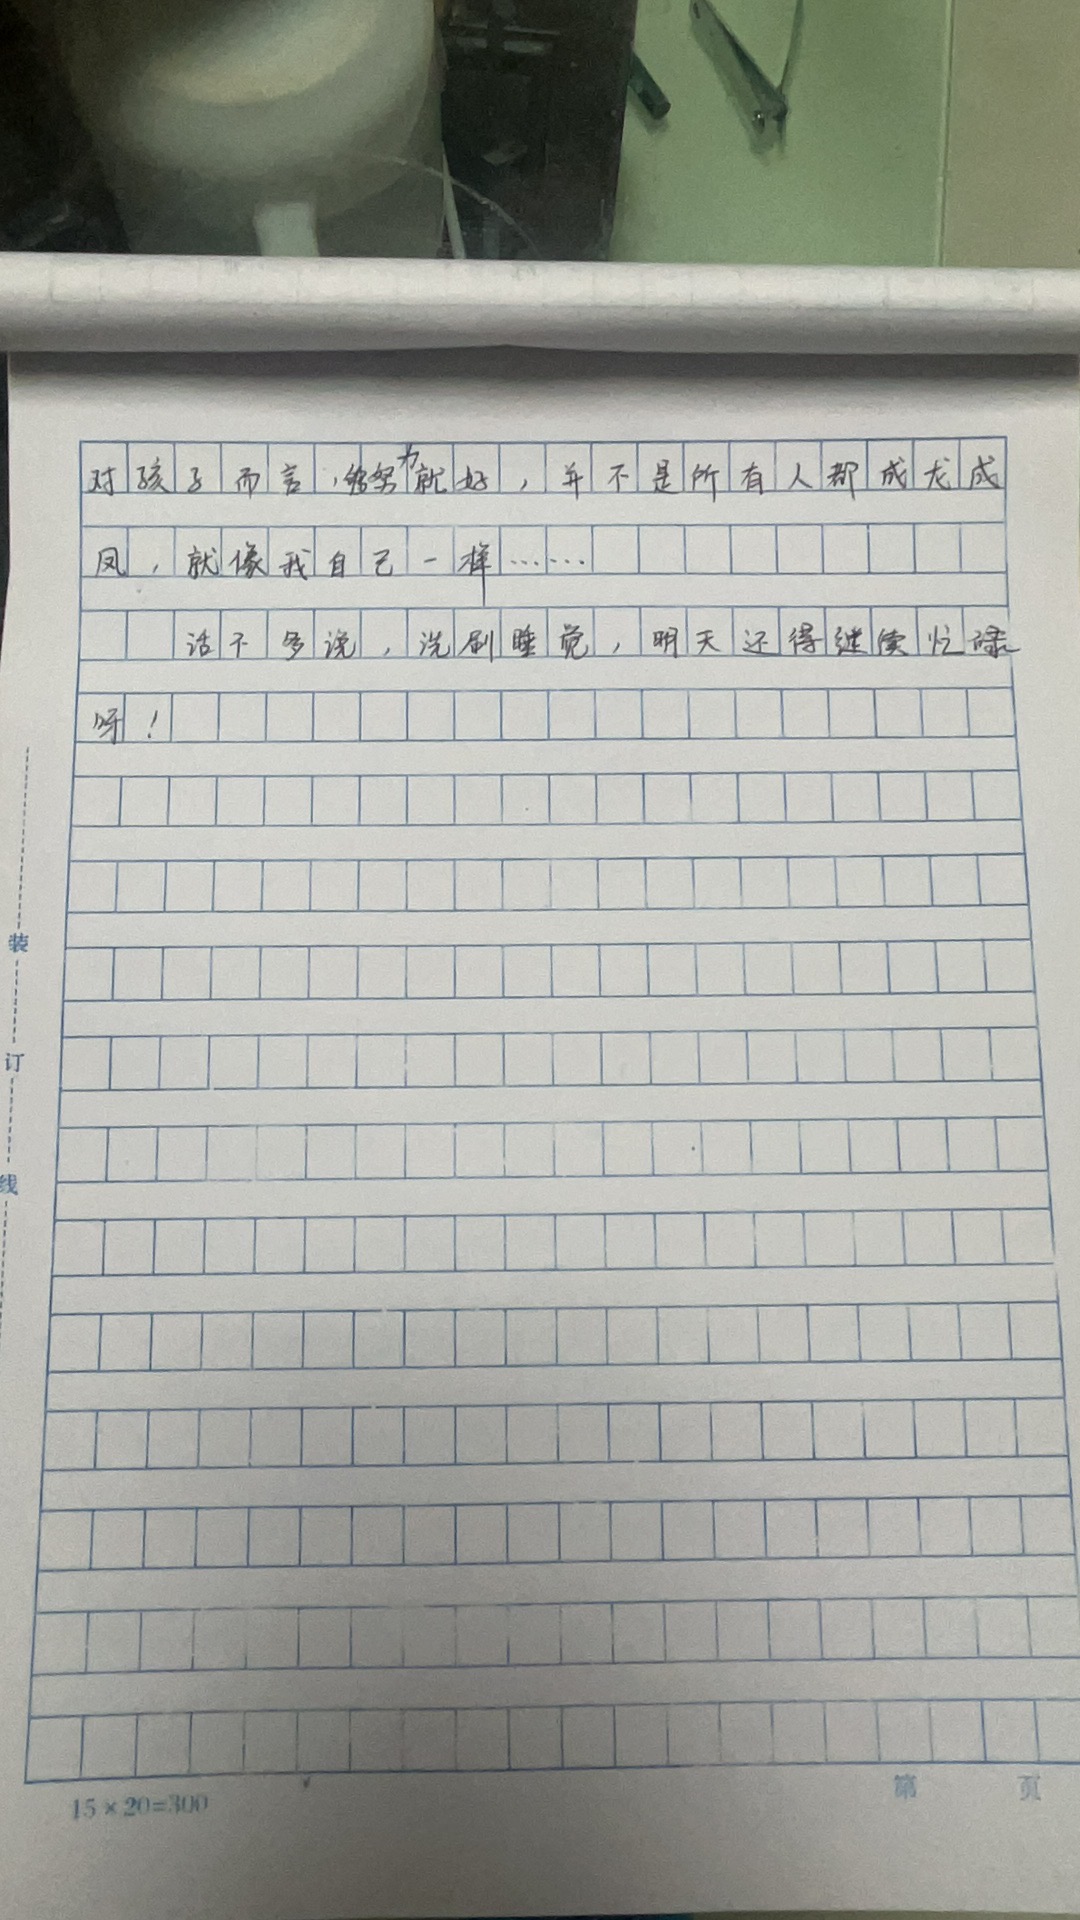 对孩子而言，够努力就好，并不是所有人都成龙成
凤，就像我自己一样……
话不多说，洗刷睡觉，明天还得继续忙碌
呀！
装
订
线
15×20=300
第 页